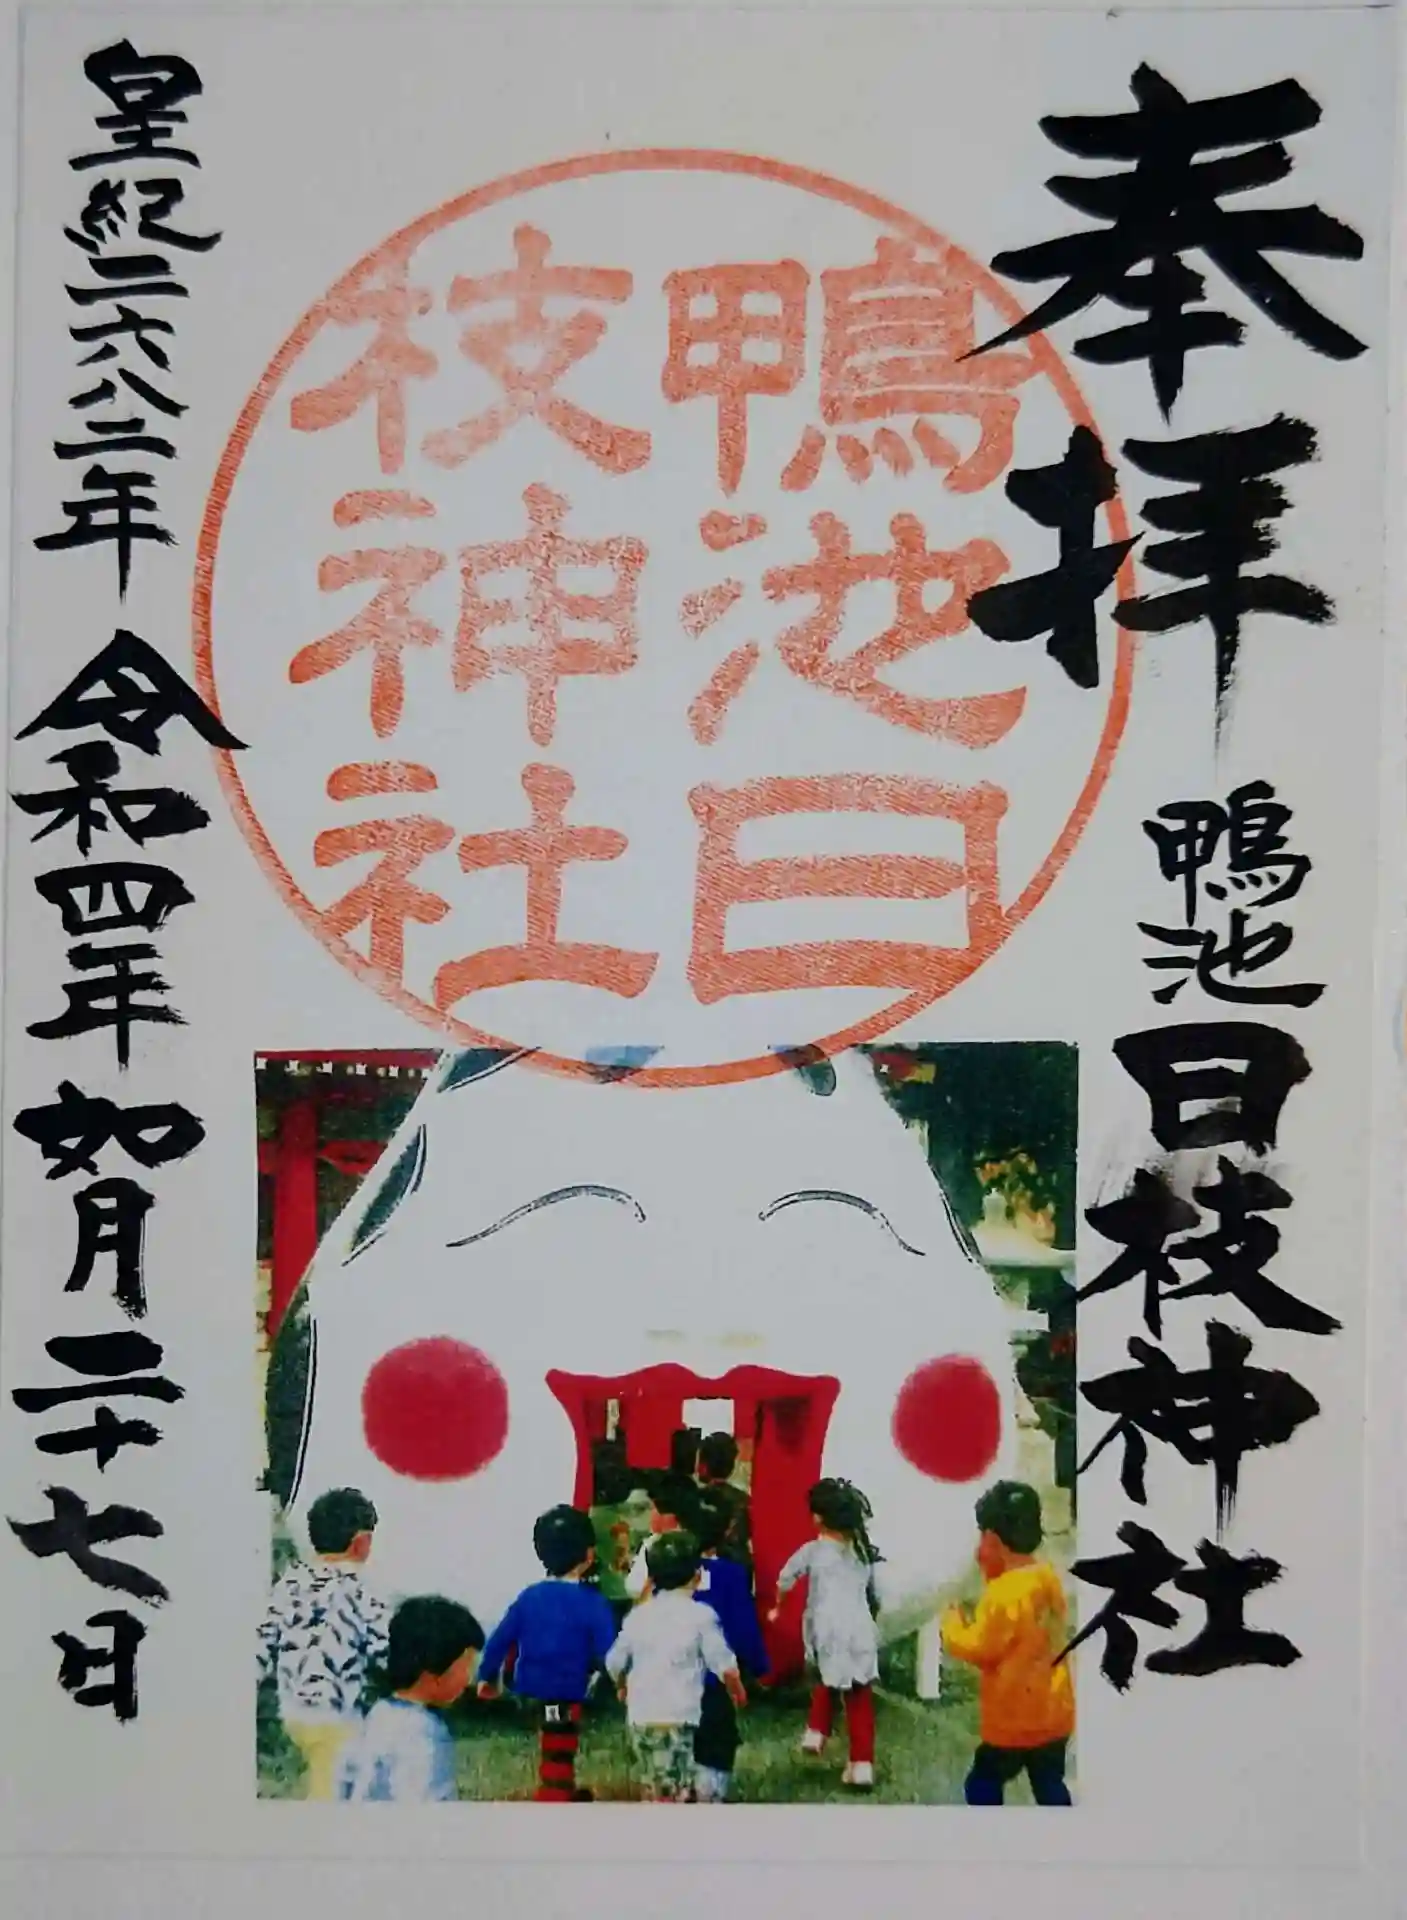 奉拝
鴨池日枝神社
鴨池日
枝神社
皇紀二六八二年
令和四年如月二十七日